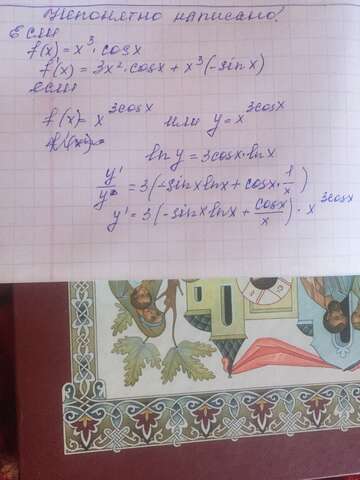 Непонятно написано!
Если
f(x) = x³ · cosx
f'(x) = 3x² · cosx + x³(-sinx)
если
f(x) = x^3cosx или y = x^3cosx
ln y = 3cosx · ln x
y'/y = 3(-sinx lnx + cosx · 1/x)
y' = 3(-sinx lnx + cosx/x) · x^3cosx